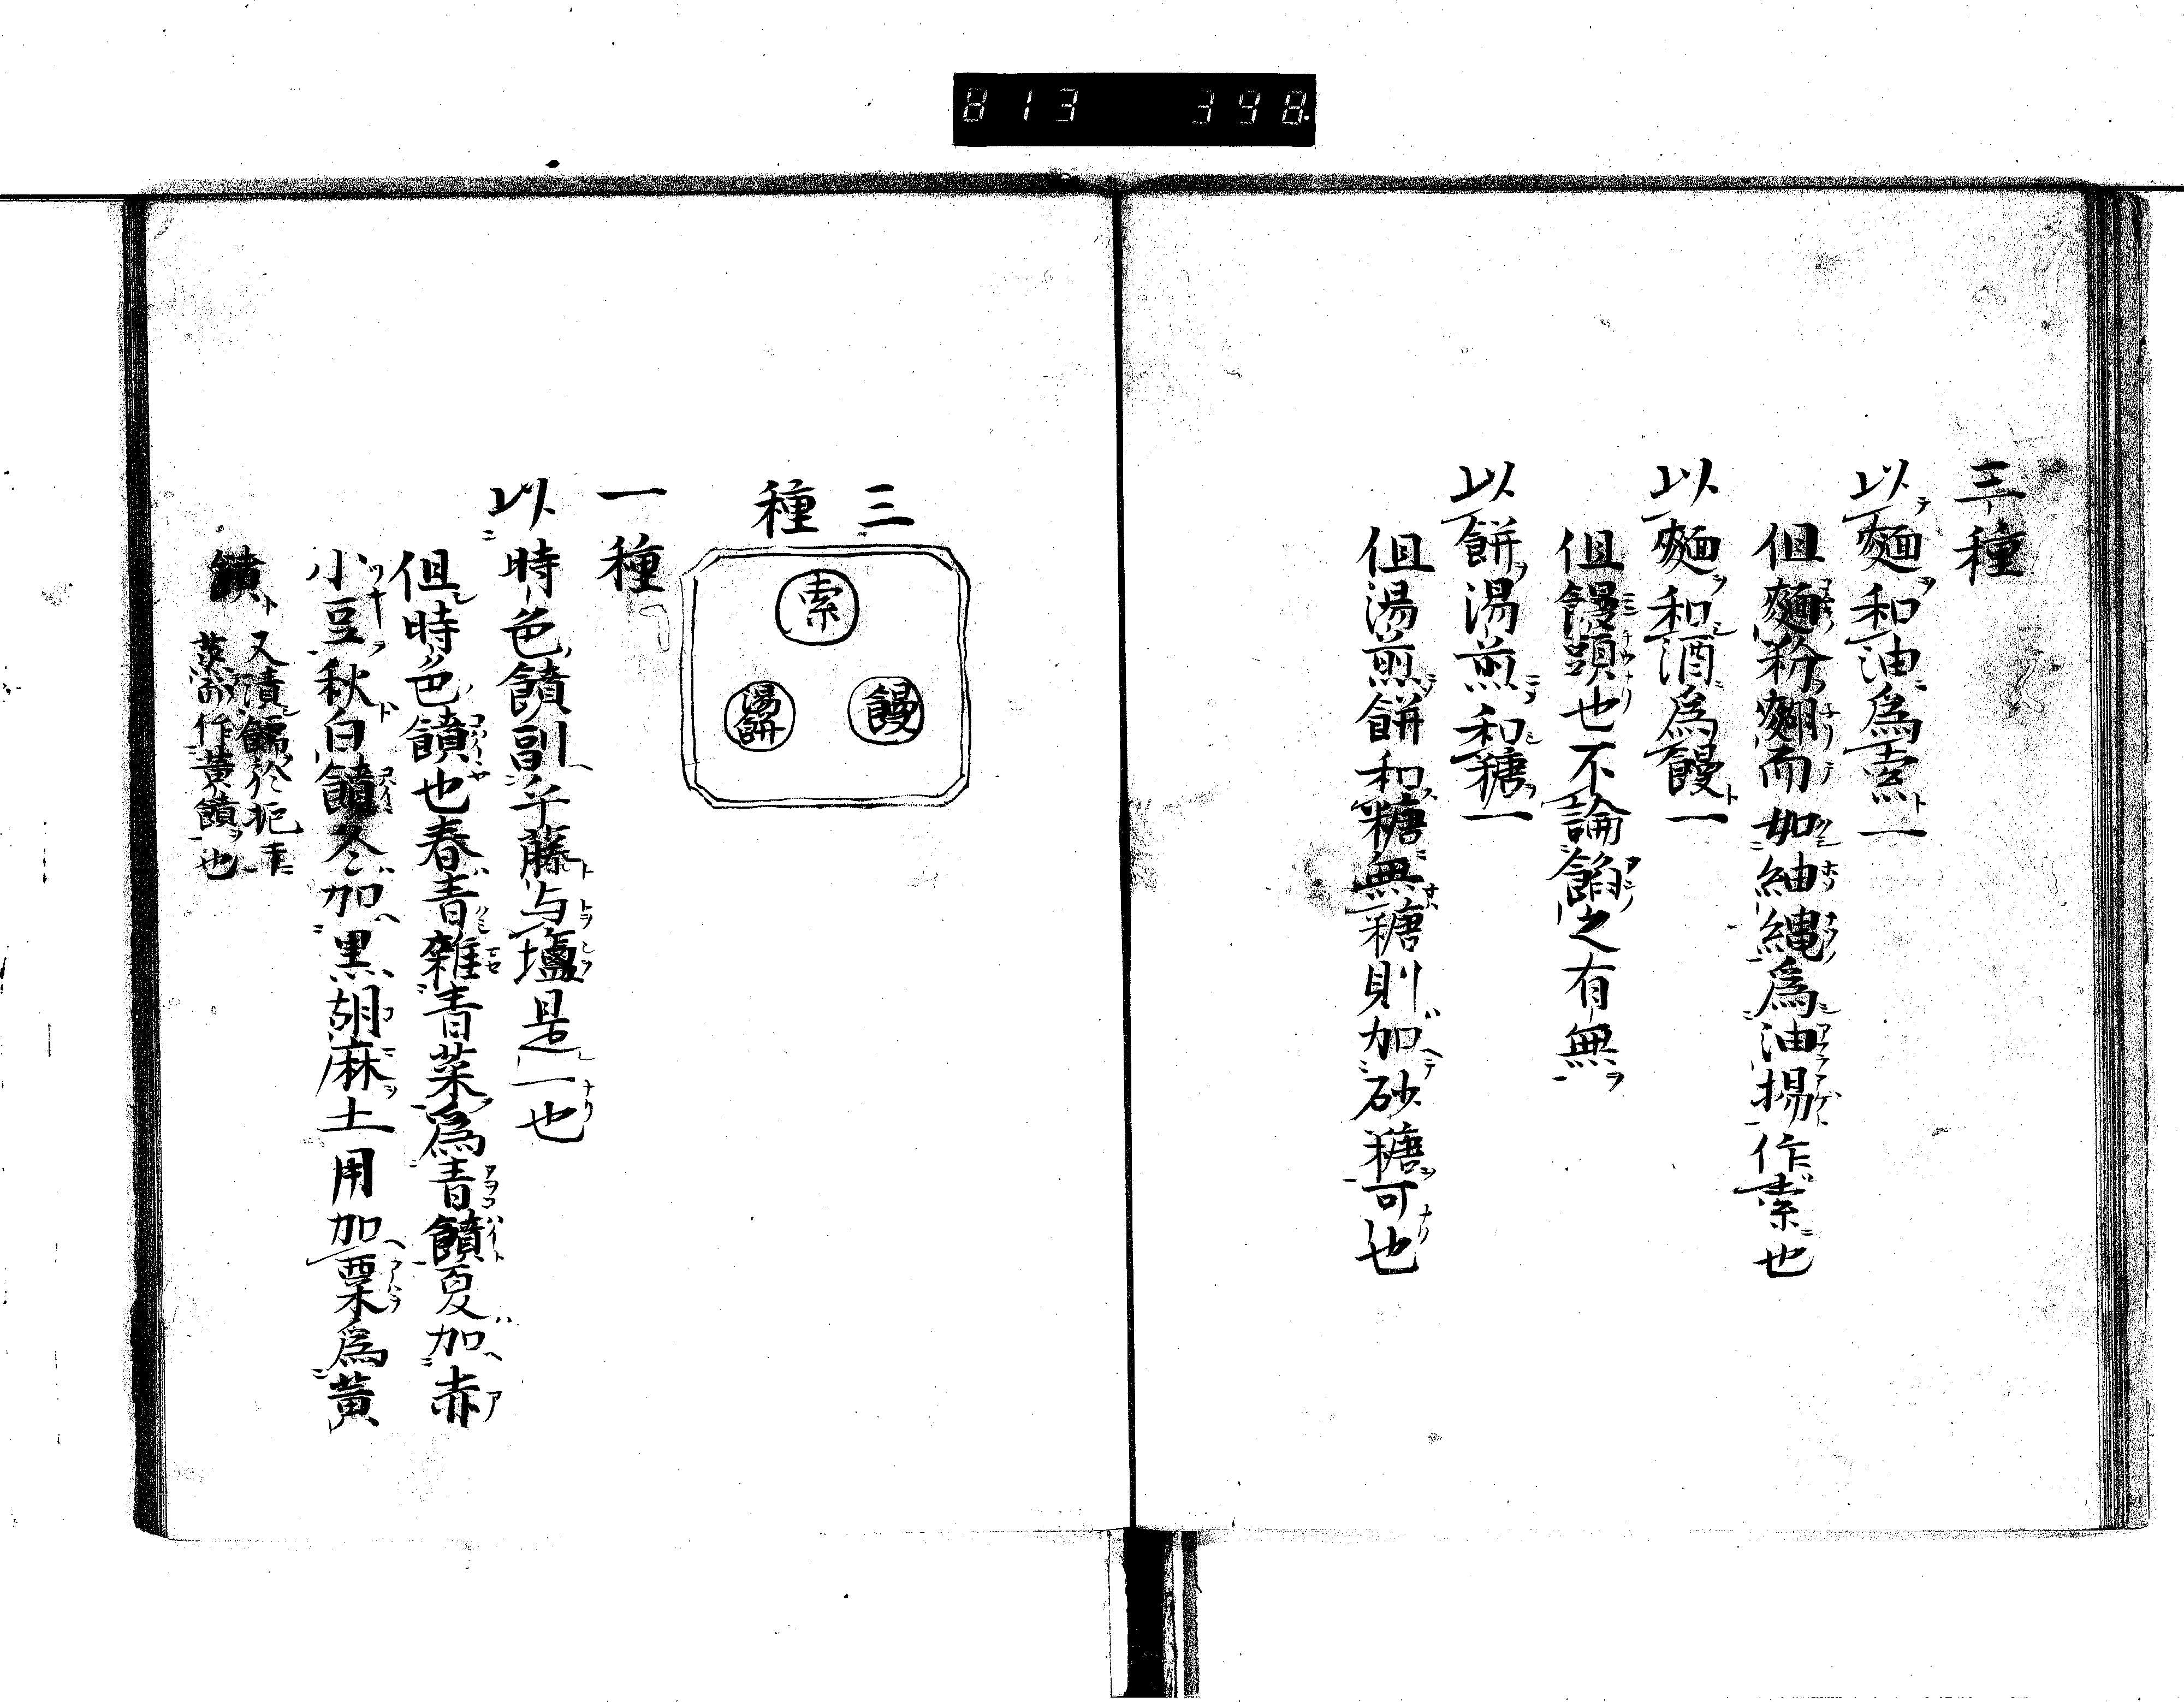 813 398
三種
以麵和油為索
但麵粉麹而如紬縄為油揚作索也
以麵和酒為饅
但饅頭也不論餡之有無
以餅湯煎和糖
但湯煎餅和糖無糖則加砂糖可也
三種
索
饅
湯餅
一種
以時色饙副午藤与塩是一也
但時色饙也春青雜青菜為青饙夏加赤
小豆秋白饙冬加黒胡麻土用加粟為黄
饙
又漬於
蒸而作黄饙也